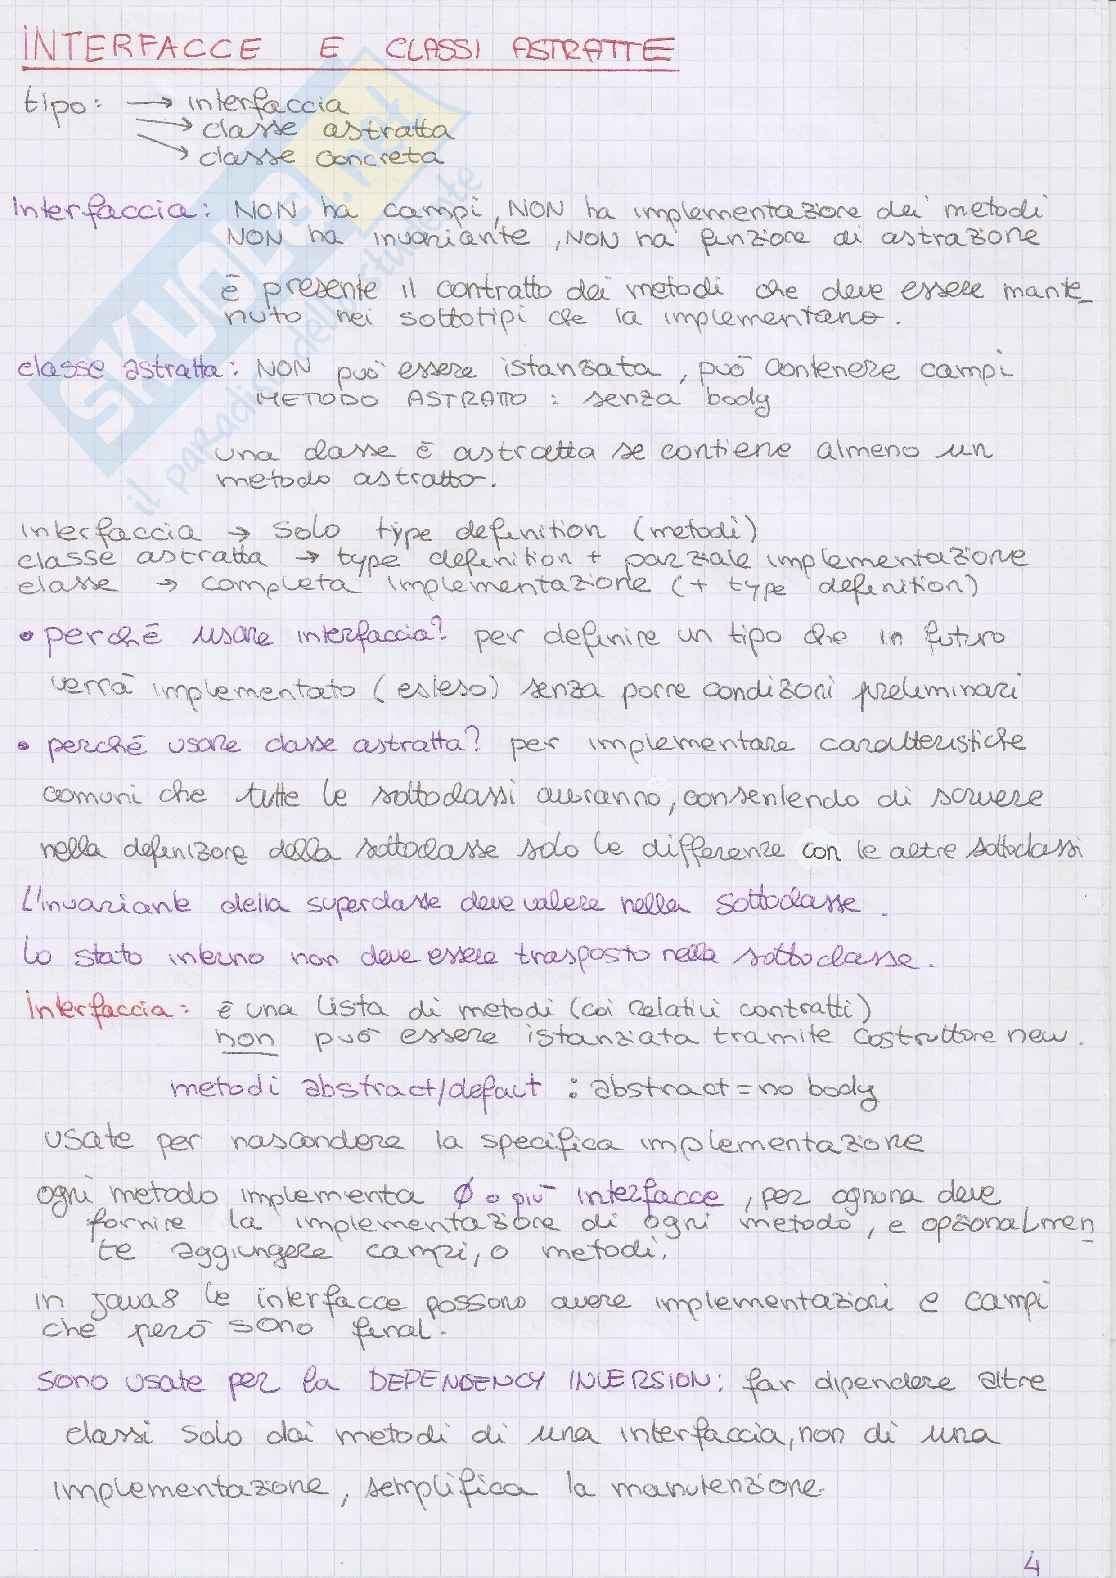 INTERFACCE E CLASSI ASTRATTE
tipo: → interfaccia
→ classe astratta
→ classe concreta
Interfaccia: NON ha campi, NON ha implementazione dei metodi
NON ha invariante, NON ha funzione di astrazione
è presente il contratto dei metodi che deve essere mante_
nuto nei sottotipi che la implementano.
classe astratta: NON può essere istanziata, può contenere campi
METODO ASTRATTO: senza body
una classe è astratta se contiene almeno un
metodo astratto.
interfaccia → solo type definition (metodi)
classe astratta → type definition + parziale implementazione
classe → completa implementazione (+ type definition)
• perché usare interfaccia? per definire un tipo che in futuro
verrà implementato (esteso) senza porre condizioni preliminari
• perché usare classe astratta? per implementare caratteristiche
comuni che tutte le sottoclassi avranno, consentendo di scrivere
nella definizione della sottoclasse solo le differenze con le altre sottoclassi
L'invariante della superclasse deve valere nella sottoclasse.
Lo stato interno non deve essere trasposto nella sottoclasse.
Interfaccia: è una lista di metodi (coi relativi contratti)
non può essere istanziata tramite costruttore new.
metodi abstract/default : abstract = no body
usate per nascondere la specifica implementazione
ogni metodo implementa Ø o più interfacce, per ognuna deve
fornire la implementazione di ogni metodo, e opzionalmen_
te aggiungere campi, o metodi.
in Java8 le interfacce possono avere implementazioni e campi
che però sono final.
sono usate per la DEPENDENCY INVERSION: far dipendere altre
classi solo dai metodi di una interfaccia, non di una
implementazione, semplifica la manutenzione.
4
SKUOLA.net
il paradiso dello studente